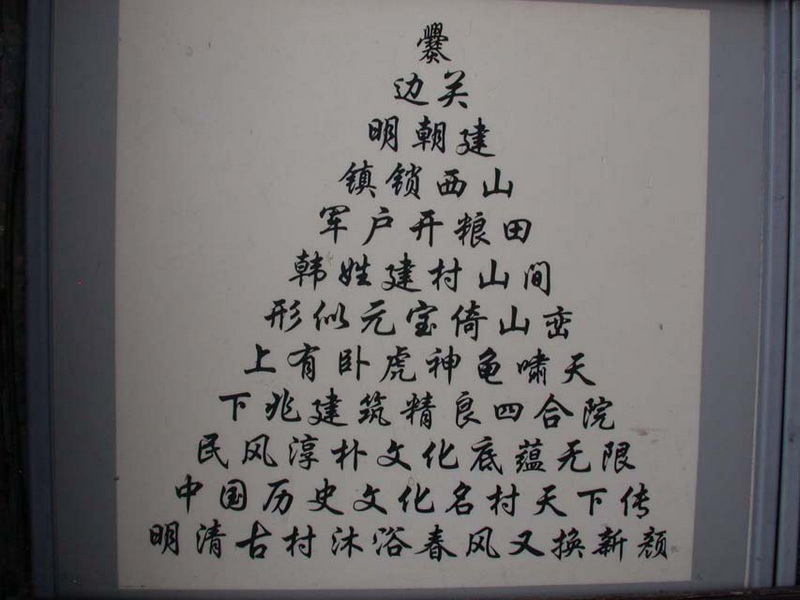 爨
边关
明朝建
镇锁西山
军户开粮田
韩姓建村山间
形似元宝倚山峦
上有卧虎神龟啸天
下兆建筑精良四合院
民风淳朴文化底蕴无限
中国历史文化名村天下传
明清古村沐浴春风又换新颜